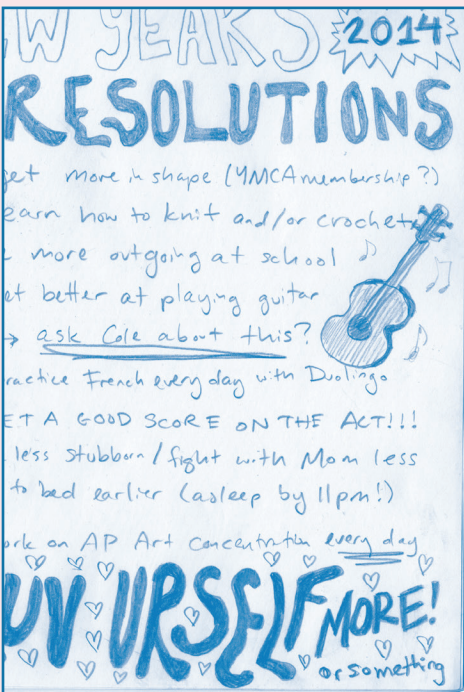 EW YEARS
2014
RESOLUTIONS
get more in shape (YMCA membership?)
earn how to knit and/or crochet
more outgoing at school
et better at playing guitar
→ ask Cole about this?
ractice French every day with Duolingo
ET A GOOD SCORE ON THE ACT!!!
less stubborn/fight with Mom less
to bed earlier (asleep by 11pm!)
ork on AP Art Concentration every day
UV URSELF MORE!
or something